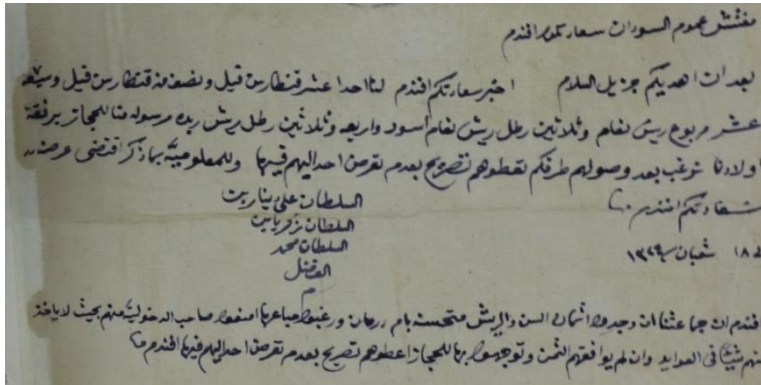 مفتش عموم السودان سعادتلو افندم
بعد ان اهديكم جزيل السلام اخبر سعادتكم افندم لنا احدا عشر قنطار سن فيل ونصف من قنطار سن فيل
عشر مربوع ريش نعام وثلاثين رطل ريش نعام اسود واربعه وثلاثين رطل ريش ربده مرسوله منا للحجاز برفقة
اولادنا نرغب بعد وصولهم طرفكم تعطوهم تصريح بعدم تعرض احد اليهم فيها وللمعلوميه بما ذكر اقتضى عرضه
سعادتكم افندم
السلطان علي دينار بن
السلطان زكريا بن
السلطان محمد
الفضل
١٨ شعبان سنة ١٣٢٩
افندم ان جماعتنا ان وجدوا اثمان السن والريش متحسنه بام درمان ورغبوا مباعها صاحب الدخوليه منهم بحيث لا ياخذ
منهم شيئا في العوايد وان لم يوافقهم الثمن وتوجهوا بها للحجاز اعطوهم تصريح بعدم تعرض احد اليهم فيها افندم